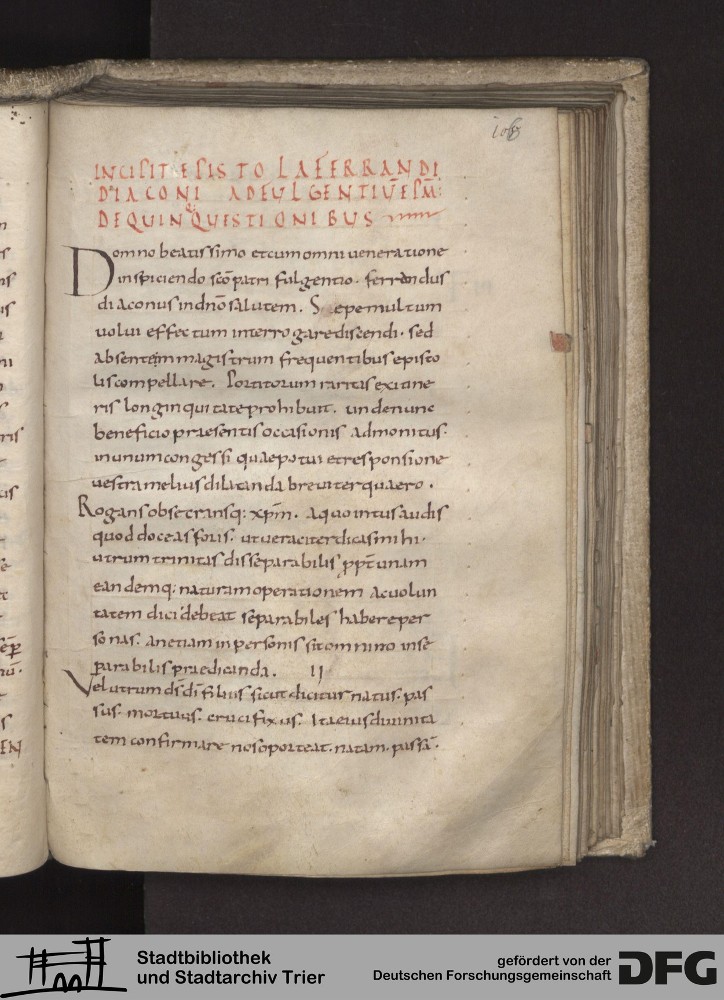 108
INCIPIT EPISTOLA FERRANDI
DIACONI AD FULGENTIŪ EPM̄:
DE QUINQ; QUESTIONIBUS
Domno beatissimo et cum omni ueneratione
inspiciendo scō patri fulgentio. ferrandus
diaconus in dnō salutem. Saepe multum
uolui effectum interrogare discendi. sed
absentem magistrum frequentibus episto
lis compellare. Portitorum raritas exitine
ris longinquitate prohibuit. unde nunc
beneficio praesentis occasionis admonitus.
in unum congessi quae potui et responsione
uestra melius dilatanda breuiter quaero.
Rogans obsecransq: xpm̄. a quo intus audis
quod doceas foris. ut ueraciter dicas mihi.
utrum trinitas disseparabilis ppt̄ unam
eandemq: naturam operationem ac uolun
tatem dici debeat separabiles habere per
sonas. an etiam in personis sit omnino inse
parabilis praedicanda. II
Vel utrum ds̄ dī filius sicut dicitur natus. pas
sus. mortuus. crucifixus. Ita eius diuinita
tem confirmare nos oporteat. natam. passā.
Stadtbibliothek
und Stadtarchiv Trier
gefördert von der
Deutschen Forschungsgemeinschaft
DFG